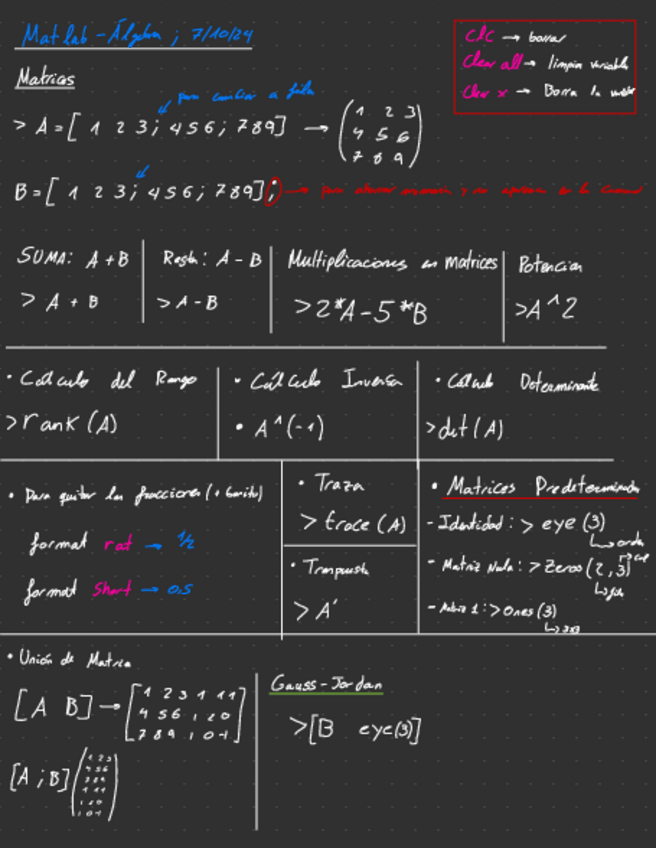 Matlab - Álgebra ; 7/10/24
clc → borrar
Clear all → limpia variable
Clear x → Borra la
Matrices
para cambiar a fila
> A = [ 1 2 3; 4 5 6; 7 8 9] → (1 2 3
4 5 6
7 8 9)
B = [ 1 2 3; 4 5 6; 7 8 9]; →
SUMA: A + B
> A + B
Resta: A - B
> A - B
Multiplicaciones en matrices
>2*A-5*B
Potencias
>A^2
• Cálculo del Rango
>rank (A)
• Cálculo Inversa
• A^(-1)
• Cálculo Determinante
>det(A)
• Para quitar las fracciones (+ bonito)
format rat → 1/2
format short → 0.5
• Traza
> trace (A)
• Traspuesta
> A'
• Matrices Predeterminadas
- Identidad: > eye (3)
↳ orden
- Matriz Nula: > Zeros (2, 3) → col
↳ fila
- Matriz 1: > Ones (3)
↳ 3x3
• Unión de Matriz
[A B] → [1 2 3 1 1 1
4 5 6 1 2 0
7 8 9 1 0 -1]
[A ; B] (1 2 3
4 5 6
7 8 9
1 1 1
1 2 0
1 0 -1)
Gauss-Jordan
>[B eye(3)]